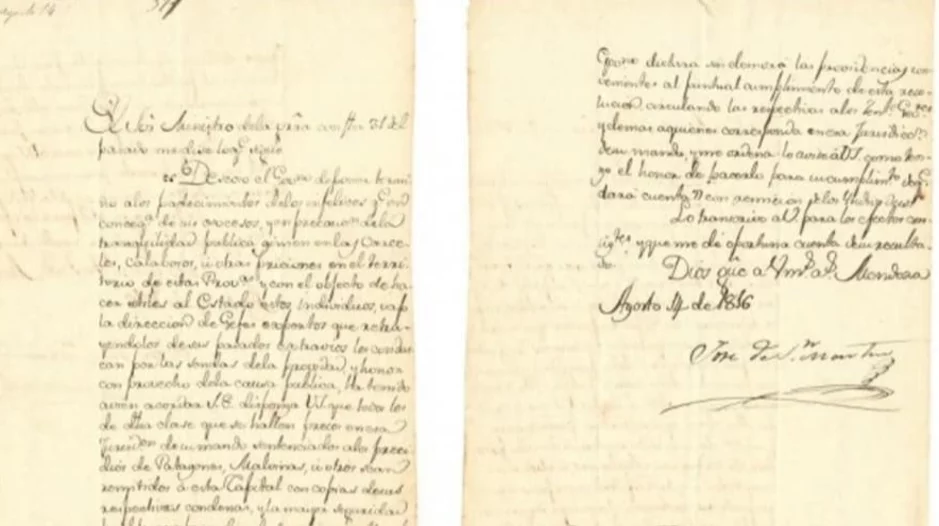 El Sor Ministro de la grra con fha 31 del
pasado me dice lo qe sigue
"Deseoso el Govno de poner termi-
no a los padecimientos de los infelices qe en
conseqa de sus excesos, y en precaucion de la
tranquilidad publica gimen en las carce-
les, calabozos, u otras priciones en el terri-
torio de estas Provas y con el objecto de ha-
cer utiles al Estado estos individuos, vajo
la direccion de Gefes expertos que retra-
yendolos de sus pasados extravios los conduz-
can por las sendas de la propiedad, y honor
con provecho de la causa publica, ha tenido
a vien acordar S.E. disponga VS. que todos los
de dha clase que se hallan presos en esa
Jurisdon de su mando sentenciados a los presi-
dios de Patagones, Malvinas, u otros sean
remitidos á esta Capital con copias de sus
respectivas condenas, y la mayor seguridad
Govno dictara sin demora las providencias con-
venientes al puntual cumplimiento de esta reso-
lucion circulando las respectivas a los Tente Gov.s
y demas a quienes corresponda en esa Jurisdicn
de su mando, y me ordena lo avise á VS. como ten-
go el honor de hacerlo para su cumplimto
dará cuenta con remision de los
Lo transcrivo a V. para los efectos con-
sigtes y que me dé oportuna cuenta de su resulta-
do. Dios gue a V. ms as. Mendoza
Agosto 14 de 1816
José de Sn Martin